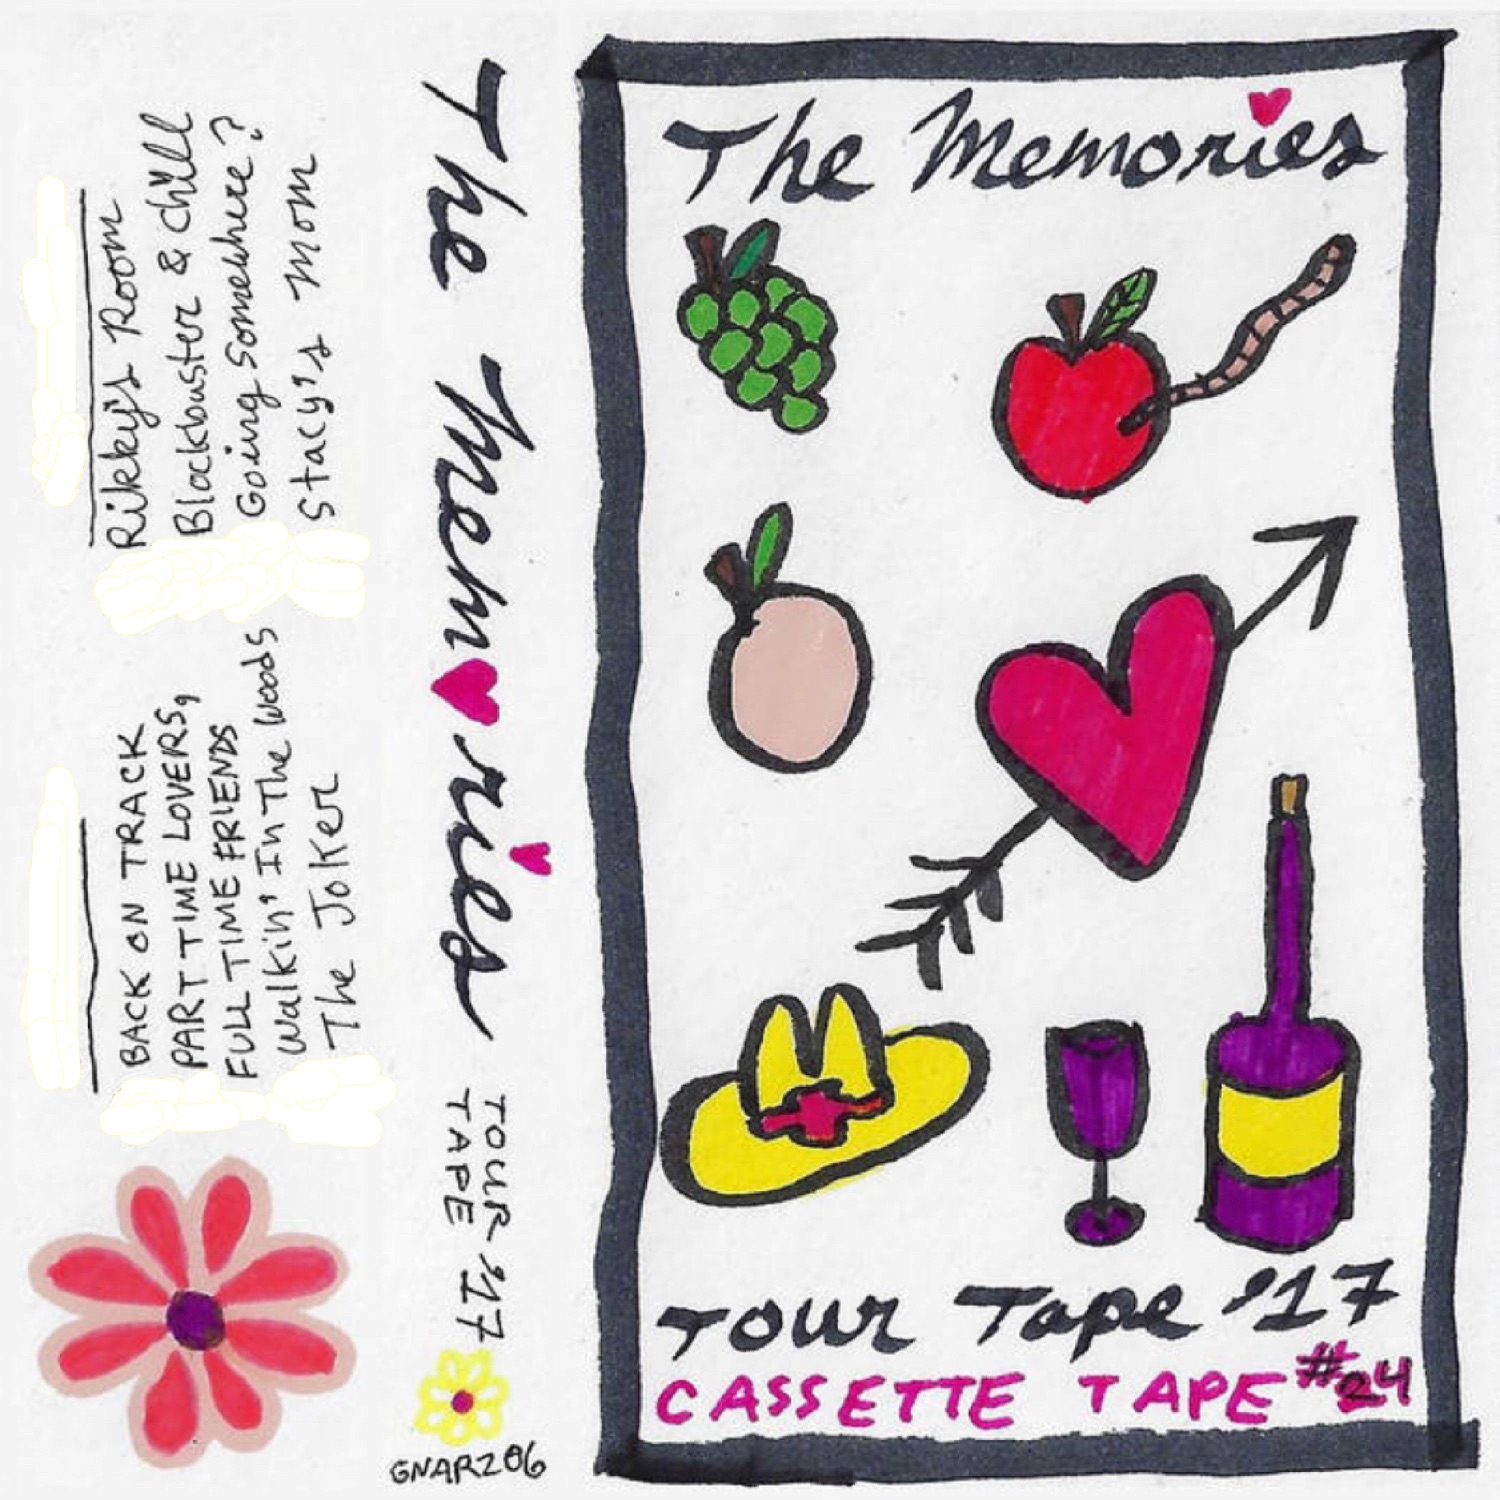 The Memories
Tour Tape '17
CASSETTE TAPE #24
The Memories
TOUR '17
TAPE
GNAR206
Rikky's Room
Blockbuster & chill
Going Somewhere?
Stacy's Mom
BACK ON TRACK
PART TIME LOVERS,
FULL TIME FRIENDS
Walkin' In The Woods
The Joker